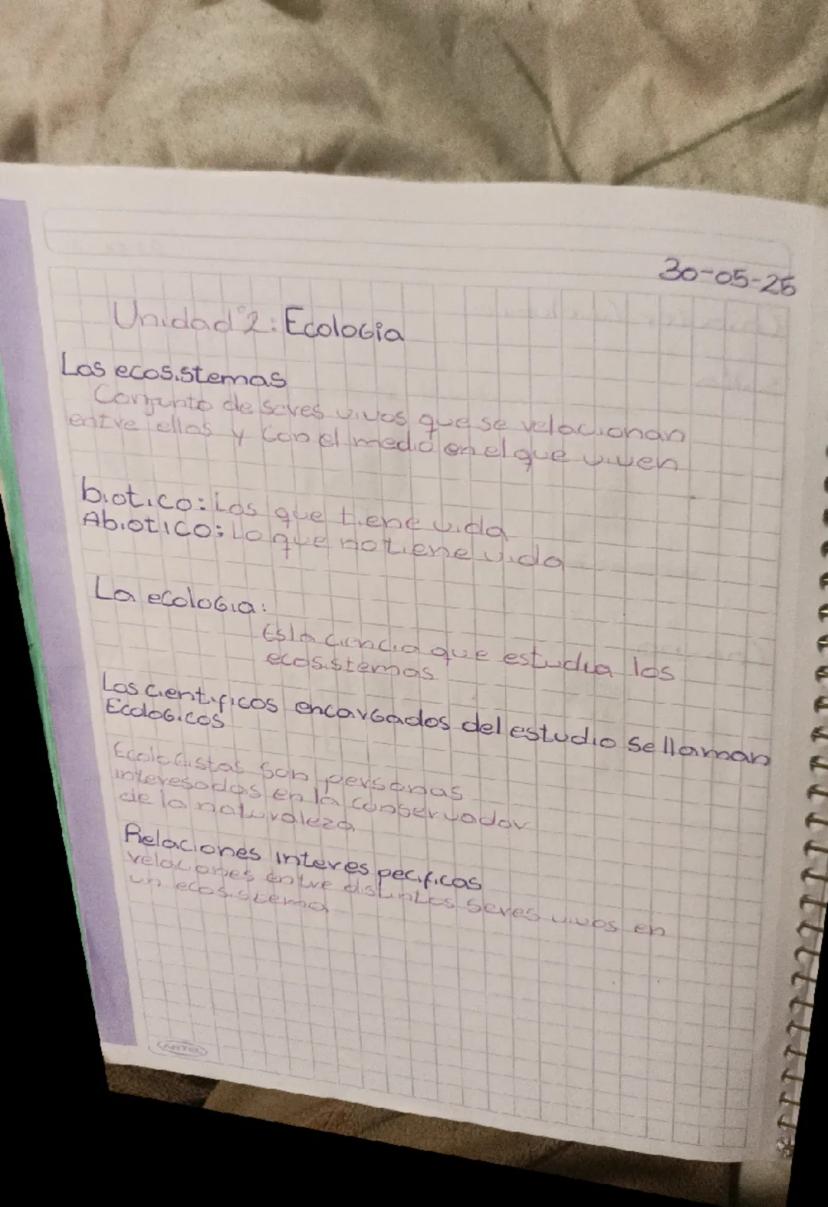 30-05-25
Unidad 2: Ecologia
Los ecosistemas
Conjunto de seres vivos que se relacionan
entre ellos y con el medio en el que viven
biotico: Los que tiene vida
Abiotico: Lo que no tiene vida
La ecologia:
Es la ciencia que estudia los
ecosistemas
Los cientificos encargados del estudio se llaman
Ecologicos
Ecologistas son personas
interesadas en la conservador
de la naturaleza
Relaciones interespecificas
relaciones entre distintos seres vivos en
un ecosistema